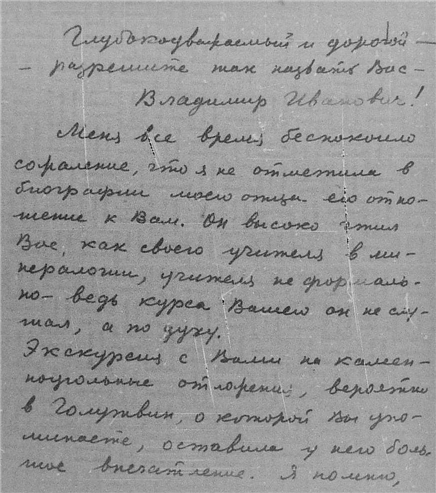 Глубокоуважаемый и дорогой —
— разрешите так назвать Вас —
Владимир Иванович!
Меня все время беспокоило
сожаление, что я не отметила в
биографии моего отца его отно-
шение к Вам. Он высоко чтил
Вас, как своего учителя в ми-
нералогии, учителя не формаль-
но — ведь курса Вашего он не слу-
шал, а по духу.
Экскурсия с Вами на камен-
ноугольные отложения, вероятно
в Голутвин, о которой Вы упо-
минаете, оставила у него боль-
шое впечатление. Я помню,